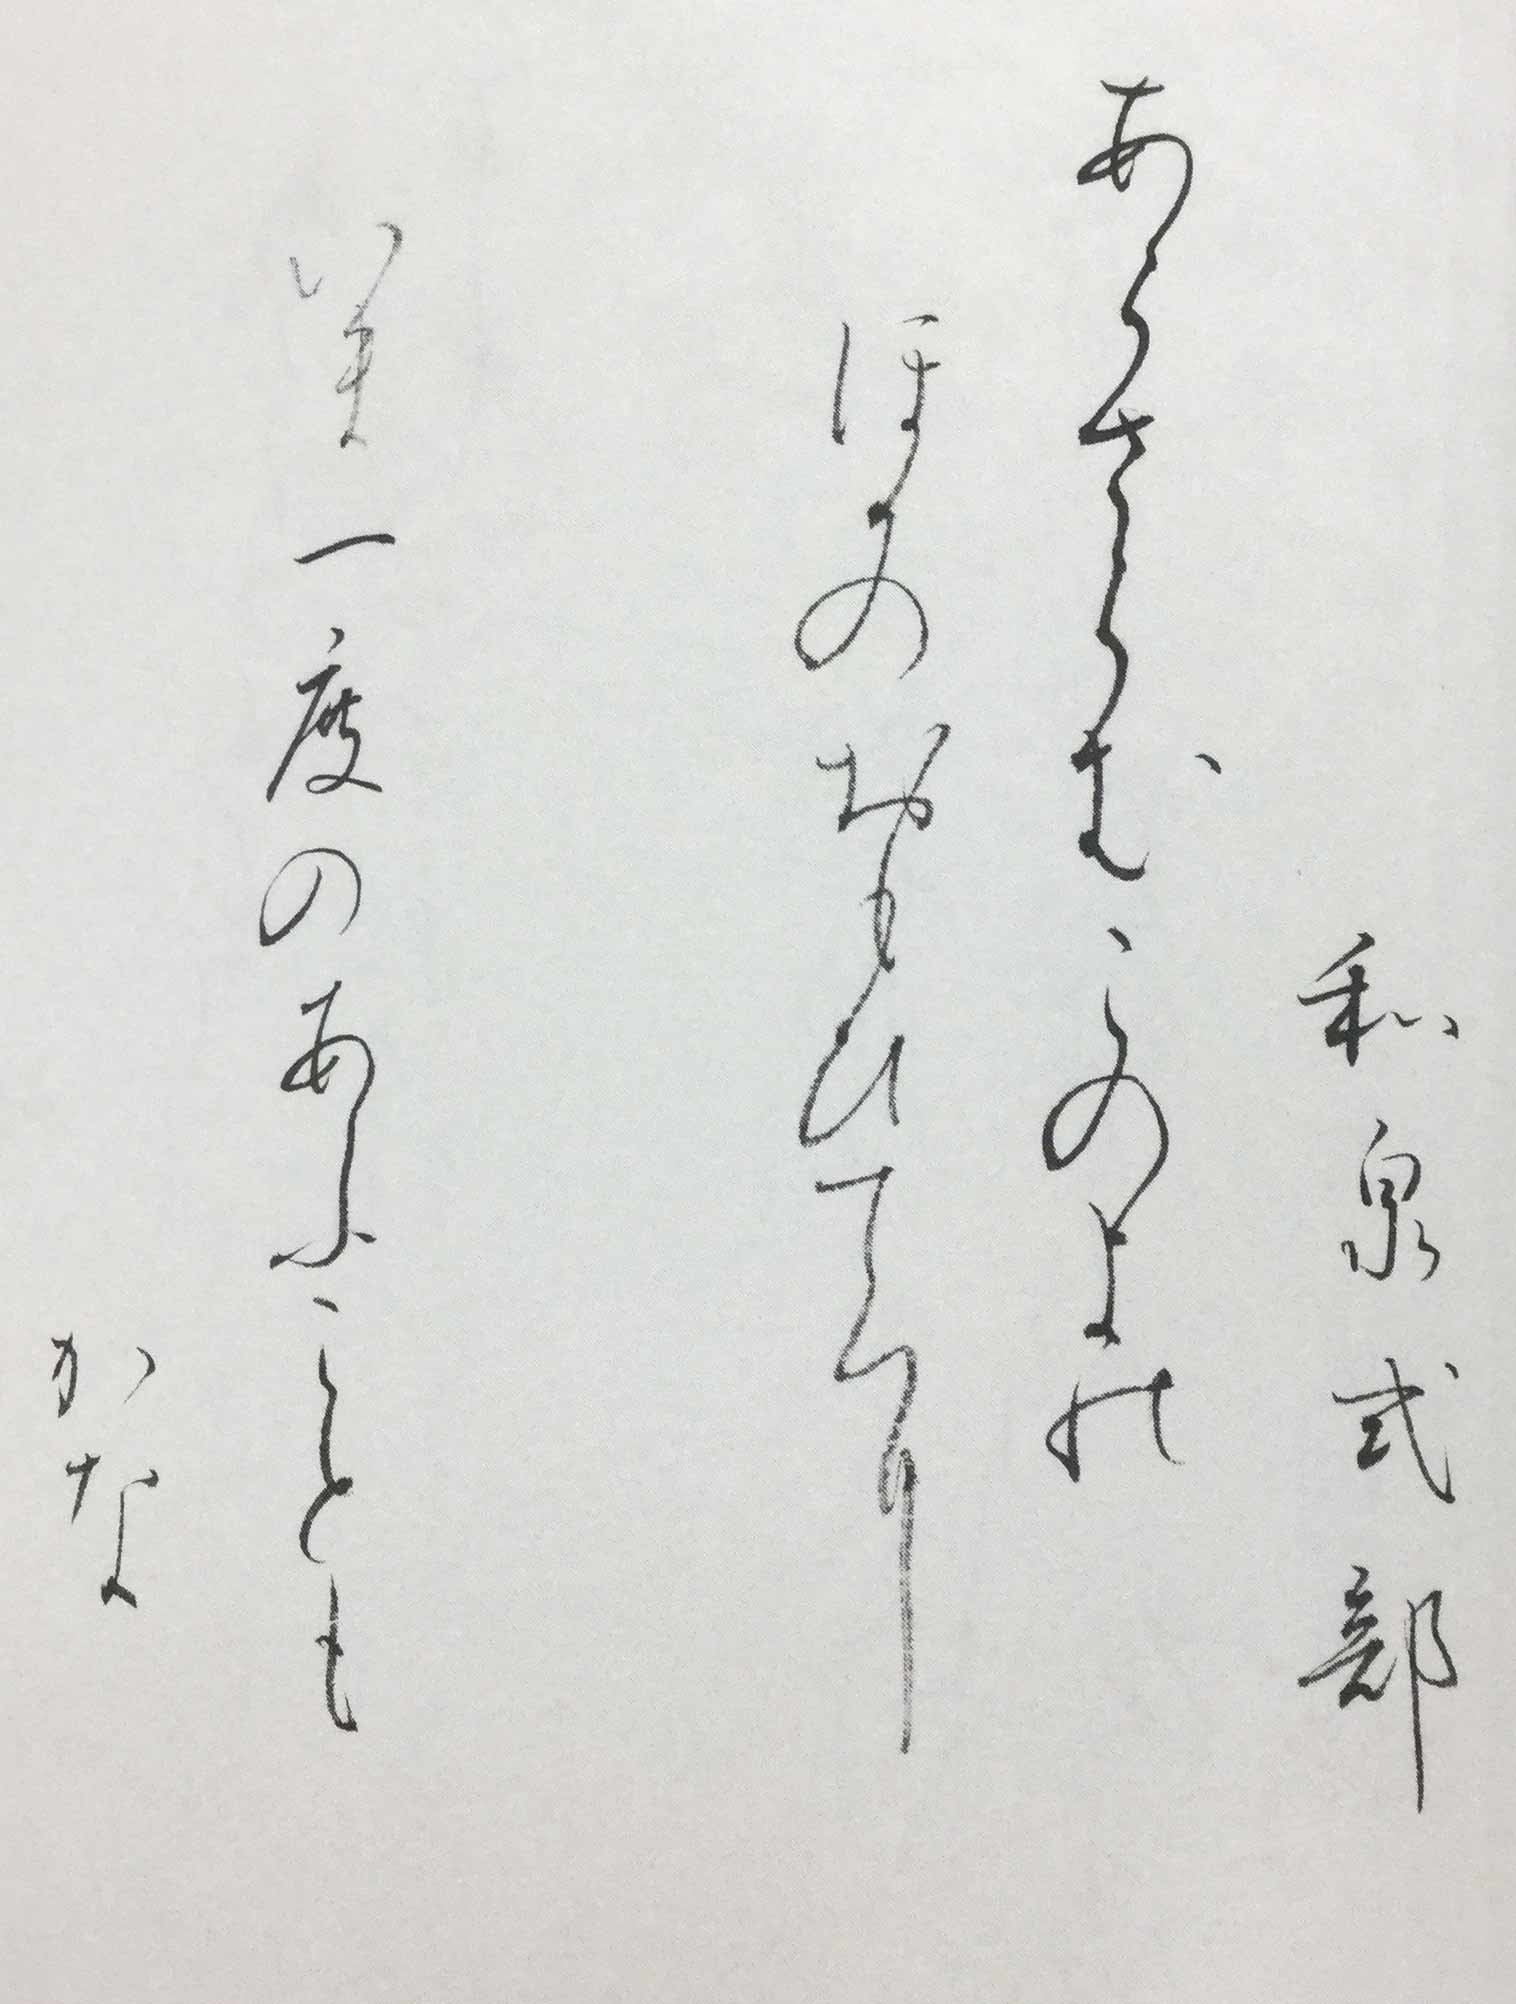 和泉式部
あらさらむこのよの
ほかのおもひてに
いま一度のあふことも
かな